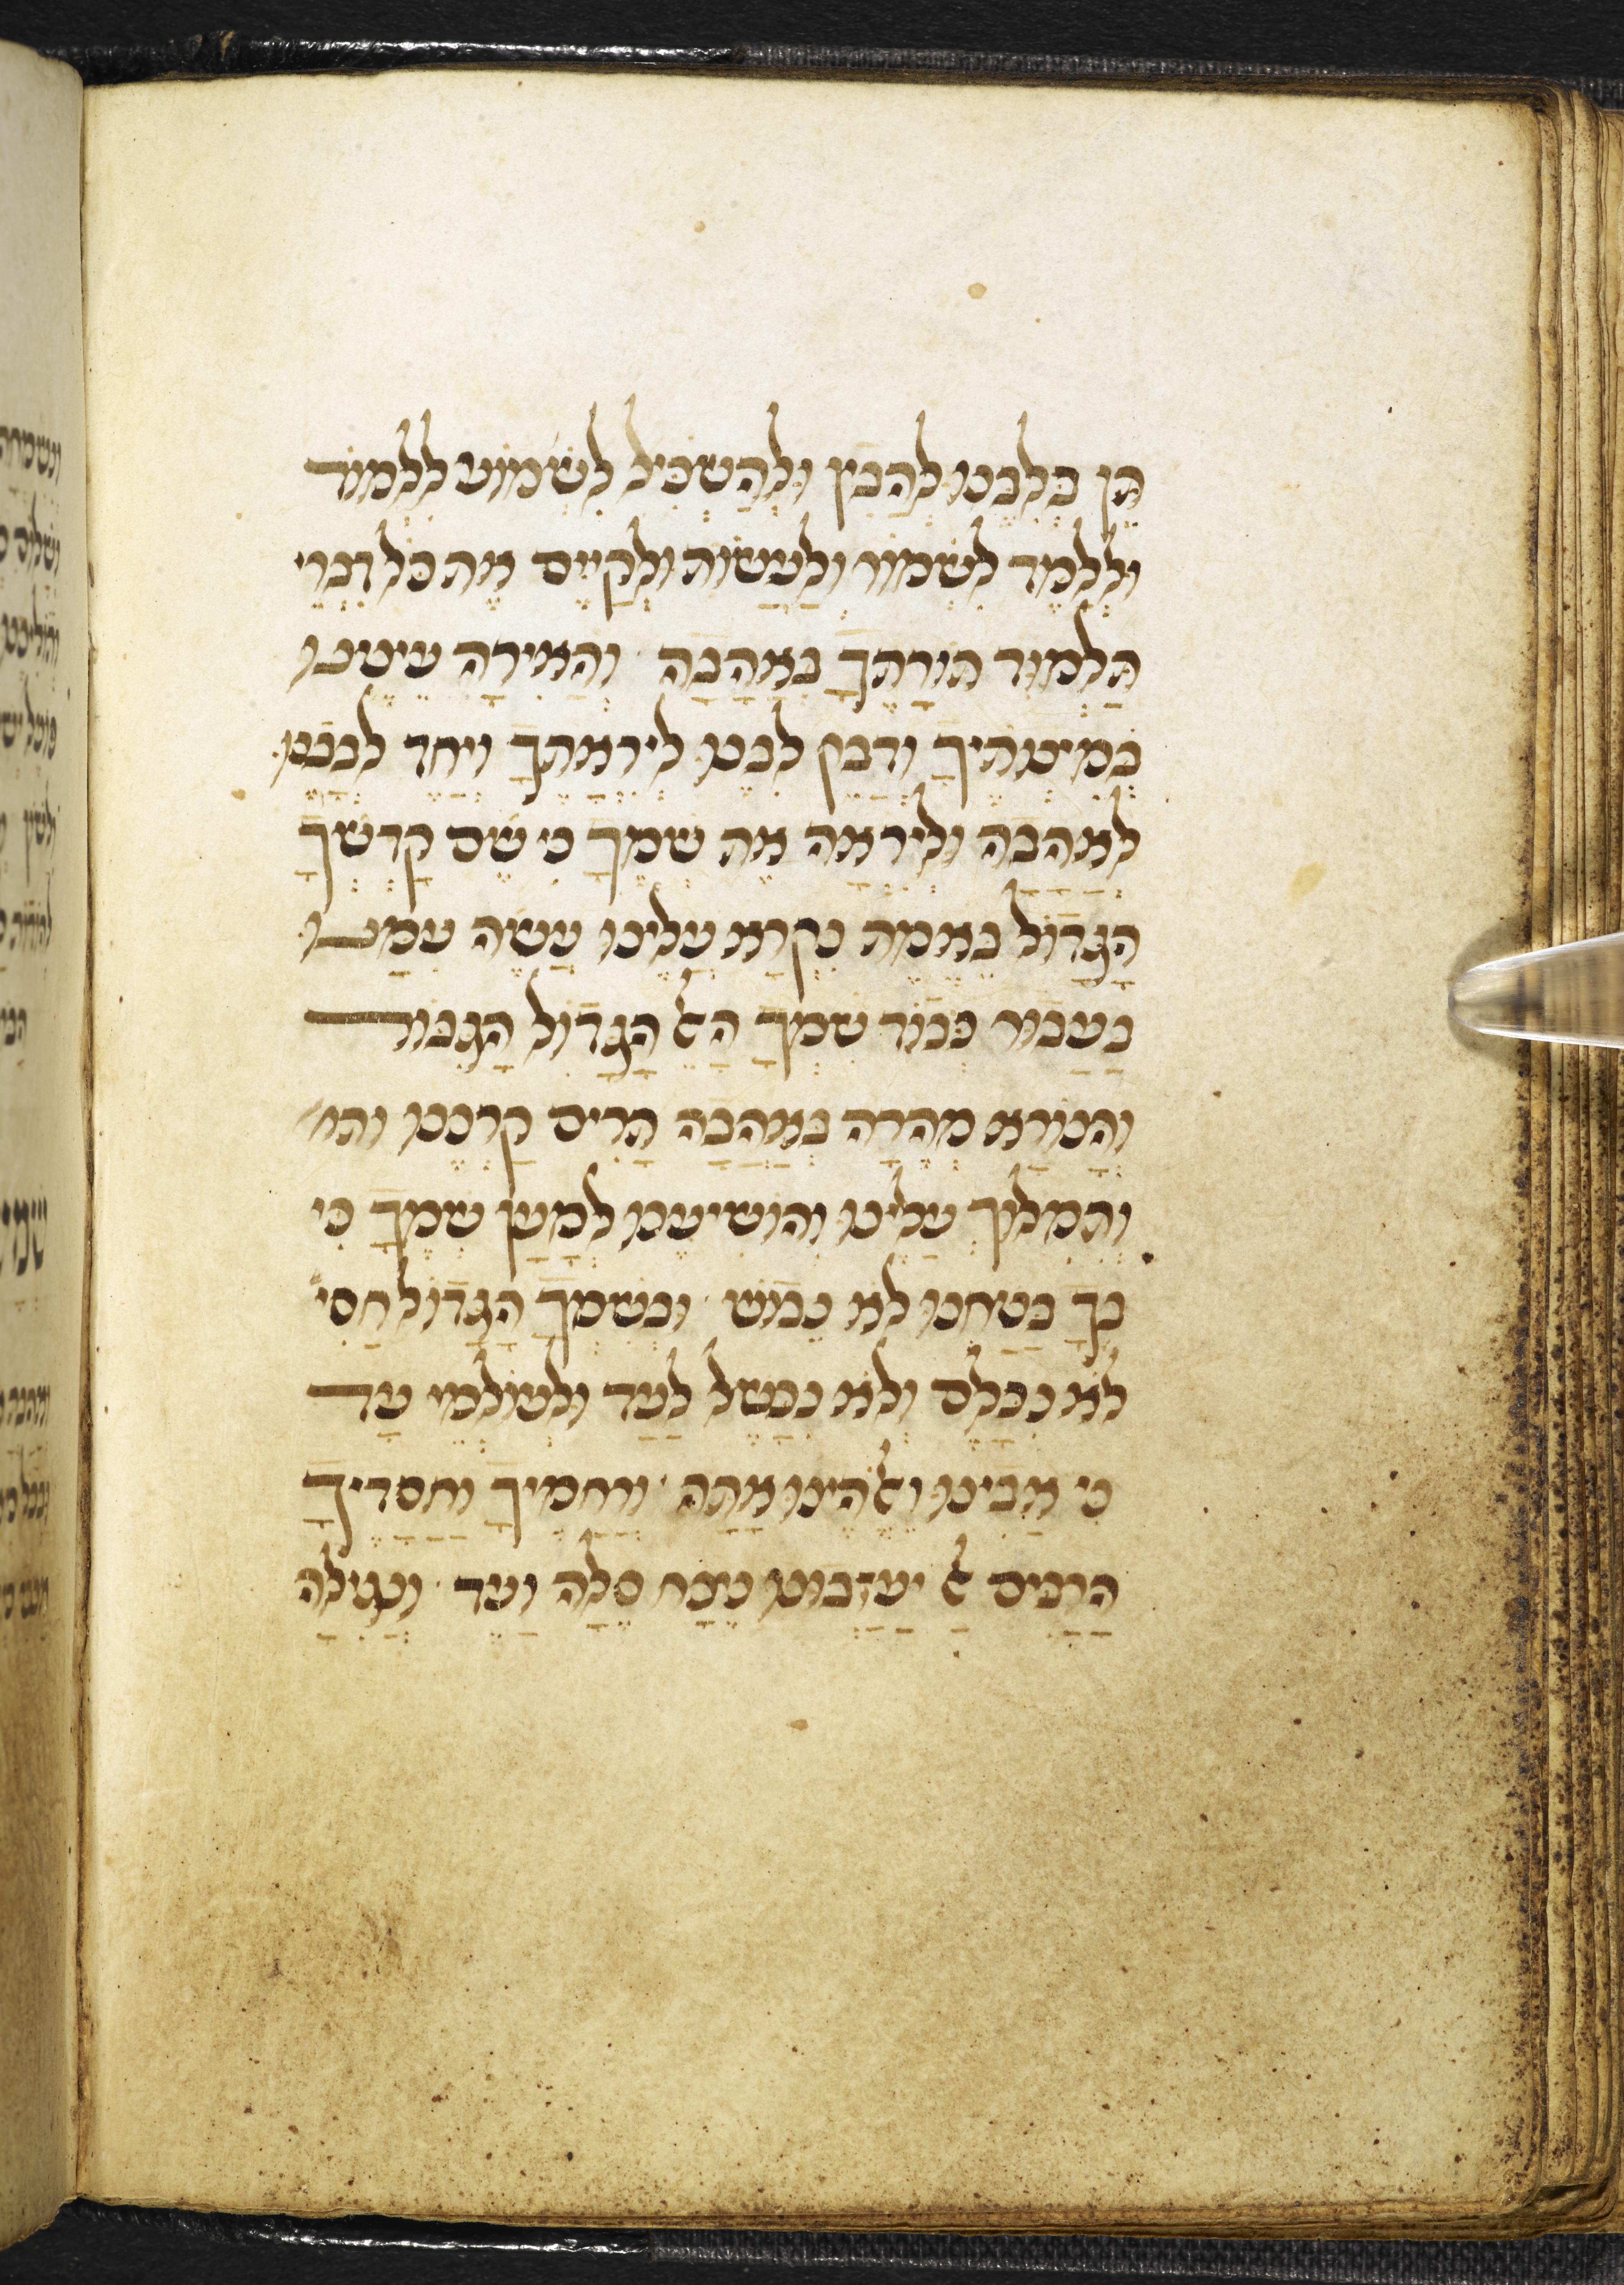 תן בלבנו להבין ולהשכיל לשמוע ללמוד
וללמד לשמור ולעשות ולקיים את כל דברי
תלמוד תורתך באהבה · והאירה עינינו
במצותיך ודבק לבנו ליראתך ויחד לבבנו
לאהבה וליראה את שמך כי שם קדשך
הגדול באמת נקרא עלינו עשה עמנו
בעבור כבוד שמך האל הגדול הגבור
והנורא מהרה באהבה תרים קרננו ותו
ותמלוך עלינו והושיענו למען שמך כי
בך בטחנו לא נבוש · ובשמך הגדול חסי
לא נכלם ולא נכשל לעד ולעולמי עד
כי אבינו ואלהינו אתה · ורחמיך וחסדיך
הרבים אל יעזבונו נצח סלה ועד · ונגילה